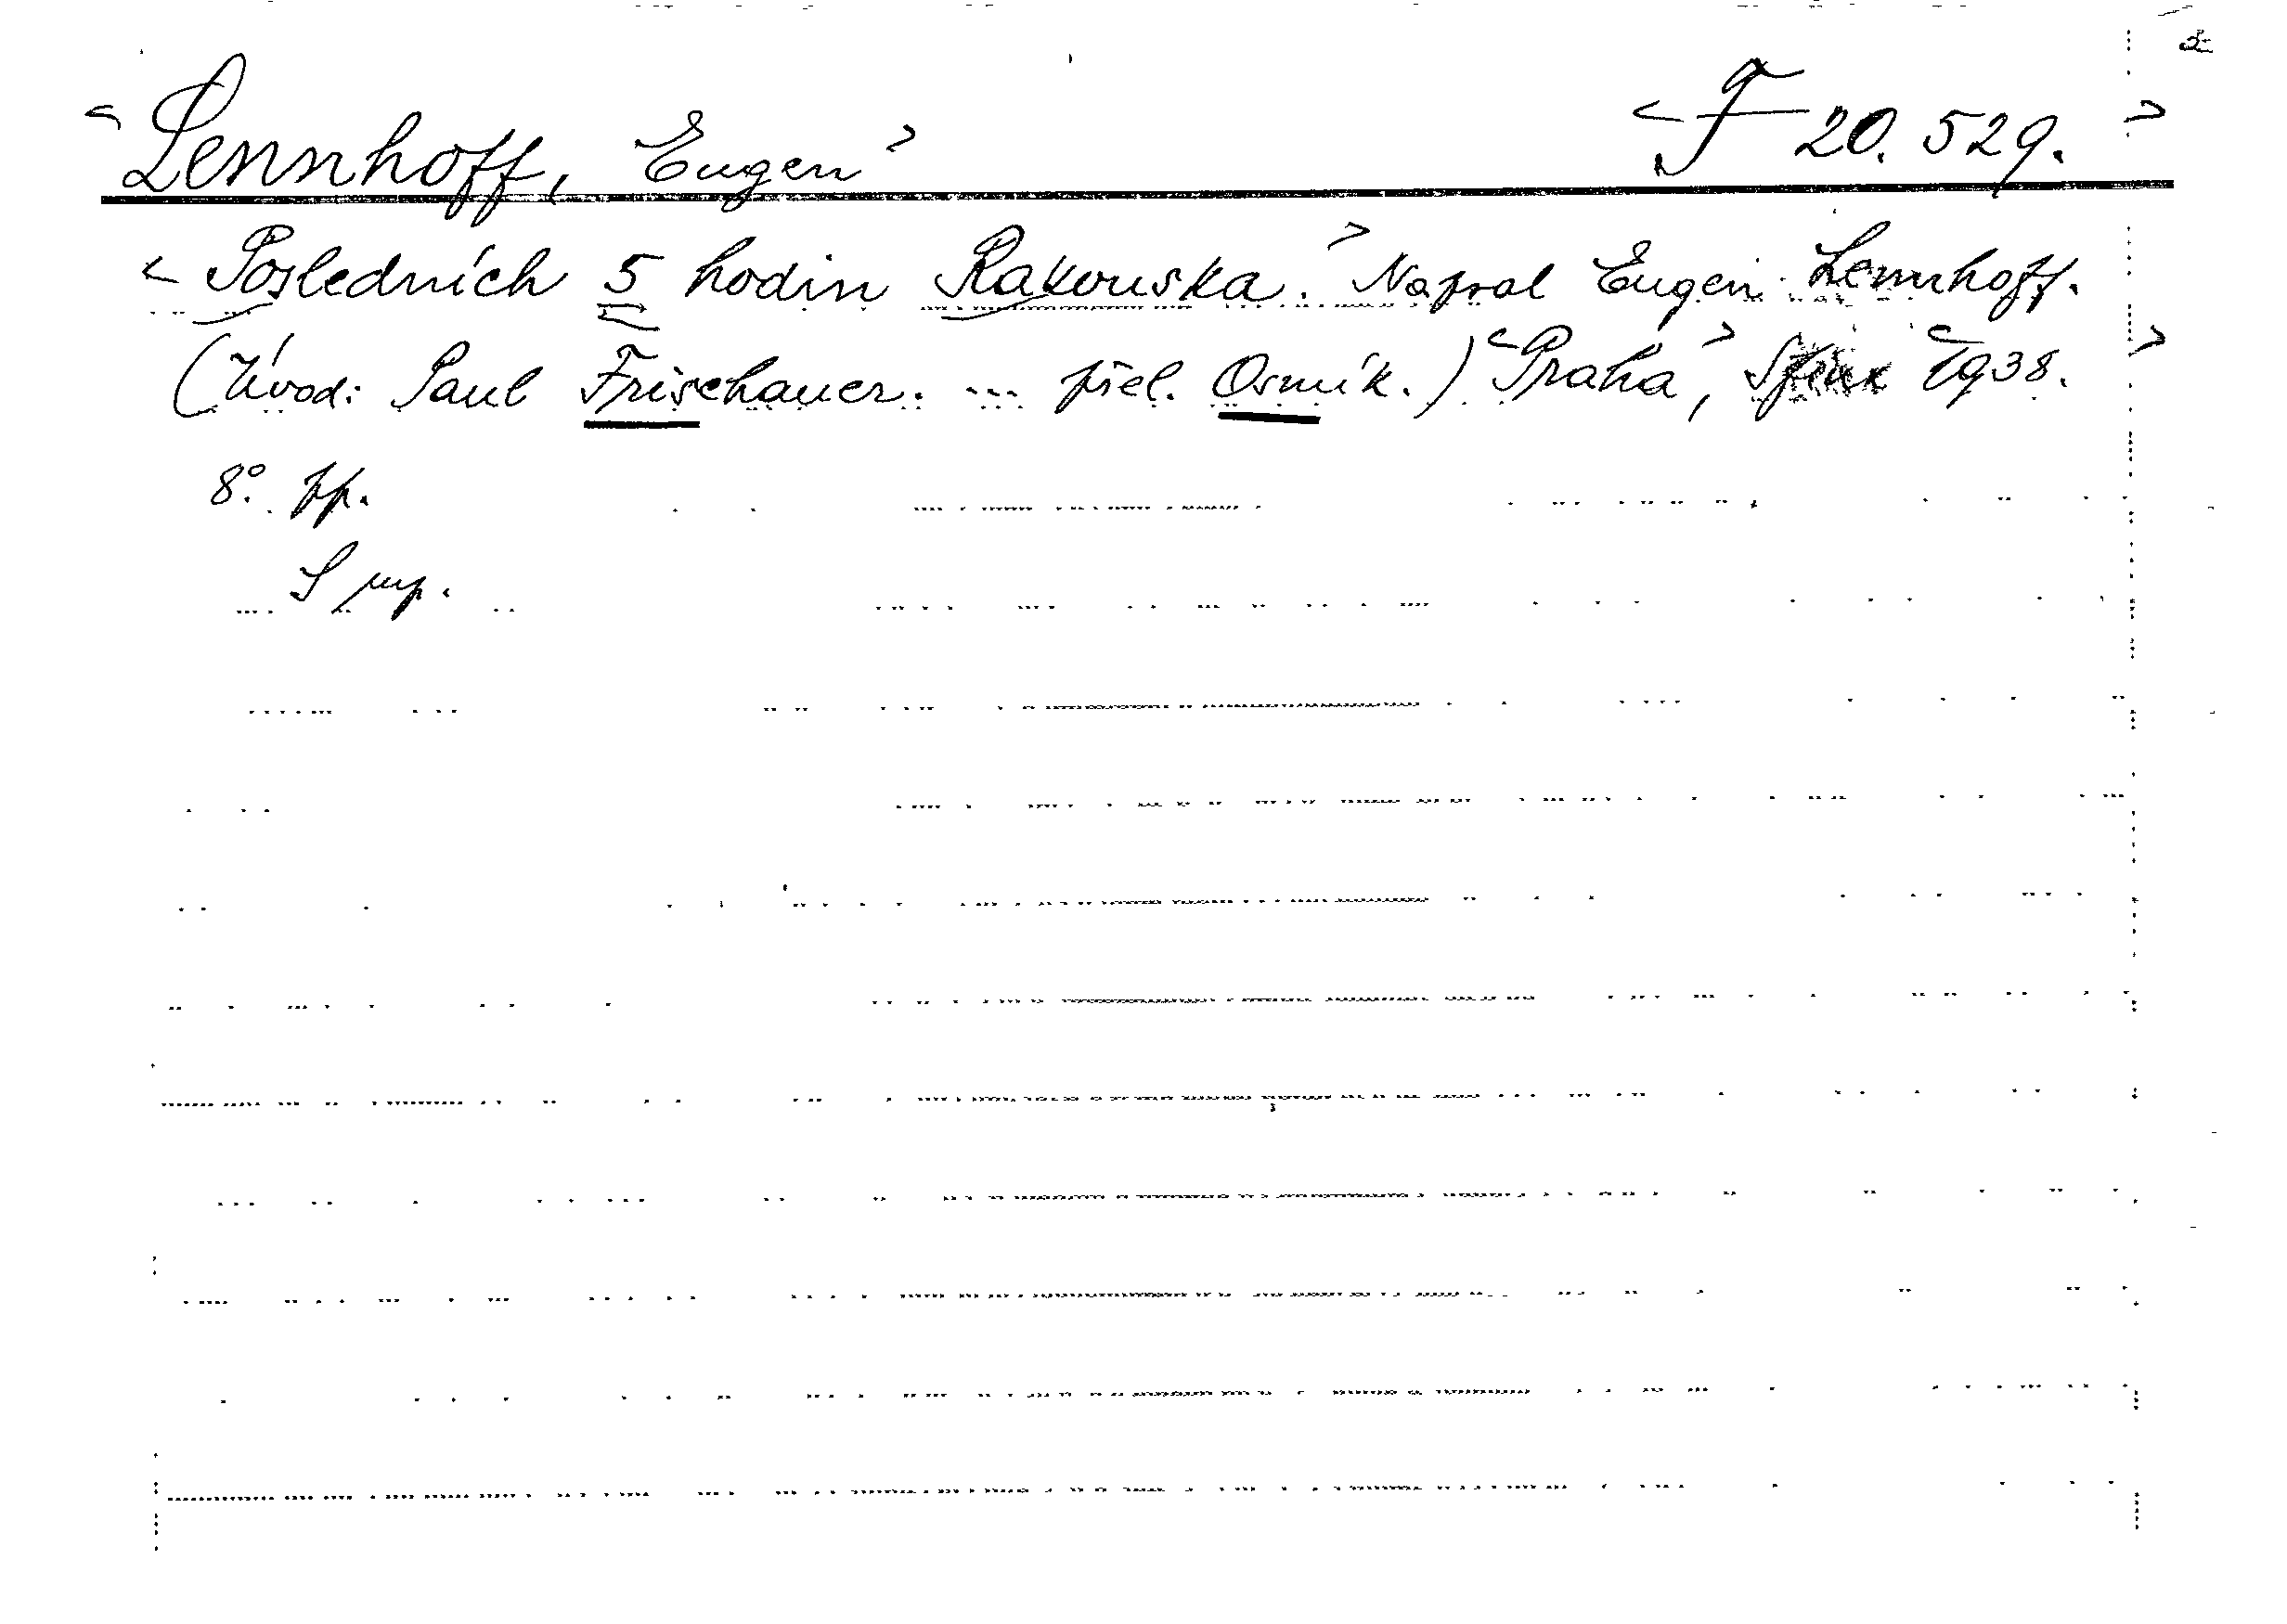 <Lennhoff, Eugen> <F 20.529.>
<Posledních 5 hodin Rakouska.> Napsal Eugen Lennhoff.
(Úvod: Paul Frischauer. ... přel. Osmík.) <Praha>, Sfinx <1938.>
8°. pp.